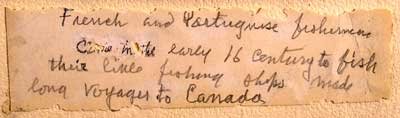 French and Portuguise fishermens
Came in the early 16 century to fish
their little fishing ships made
long voyages to Canada